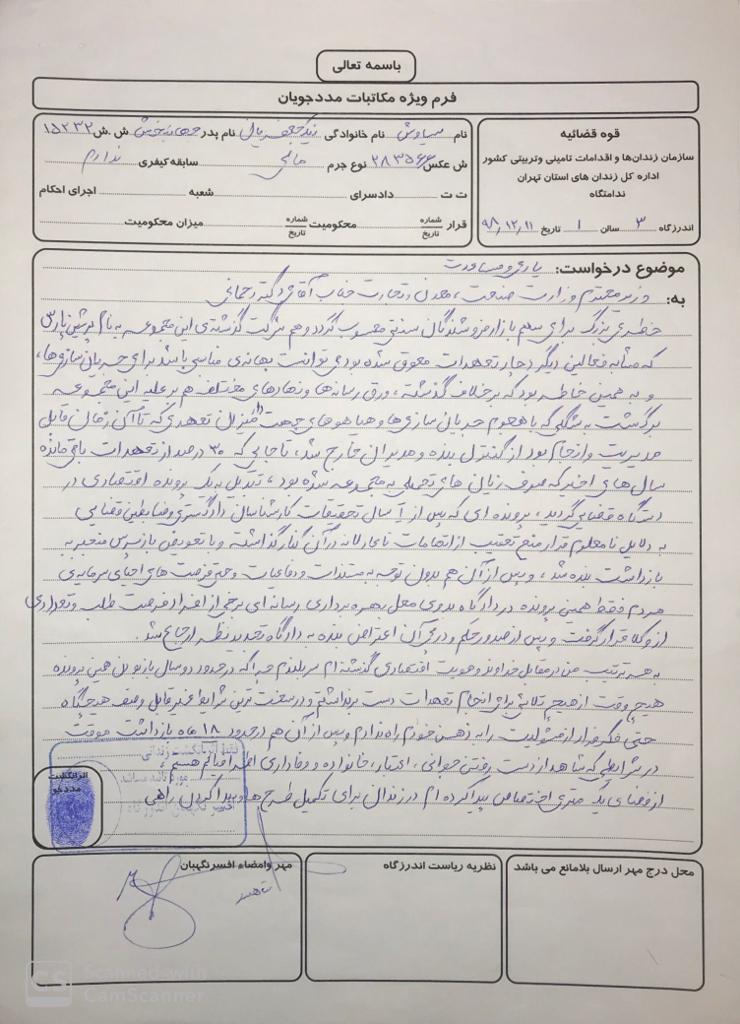 باسمه تعالی
فرم ویژه مکاتبات مددجویان
قوه قضائیه
سازمان زندان‌ها و اقدامات تامینی وتربیتی کشور
اداره کل زندان های استان تهران
ندامتگاه
اندرزگاه ۳ سالن ۱ تاریخ ۹۸,۱۲,۱۱
نام سیاوش نام خانوادگی نام پدر جهانبخش ش .ش ۱۵۲۳۲
ش عکس ۲۸۳۵۶۴ نوع جرم مالی سابقه کیفری ندارم
ت ت دادسرای شعبه اجرای احکام
قرار شماره تاریخ محکومیت شماره تاریخ میزان محکومیت
موضوع درخواست: یاری و مساعدت
به: وزیر محترم وزارت صنعت، معدن و تجارت جناب آقای دکتر رحمانی
خطری بزرگ برای سهم بازار فروشندگان سنتی محسوب گردد و هم شرکت گذشته‌ی این مجموعه به نام پرشین پارس
که مشابه فعالین دیگر دچار تعهدات معوق شده بود می توانست بهانه‌ی مناسبی باشد برای جریان سازی‌ها،
و به همین خاطر بود که برخلاف گذشته، ورق رسانه‌ها و نهادهای مختلف هم بر علیه این مجموعه
برگشت به شکلی که با هجوم جریان سازی‌ها و هیاهو های جهت دار میزان تعهدی که تا آن زمان قابل
مدیریت و انجام بود از کنترل بنده و مدیران خارج شد، تا جایی که ۳۰ درصد از تعهدات باقی مانده
سال های اخیر که صرف زیان های تحمیلی به مجموعه شده بود، تبدیل به یک پرونده اقتصادی در
دستگاه قضایی گردید، پرونده ای که پس از سال تحقیقات کارشناسان دادگستری و ضابطین قضایی
به دلایل نامعلوم قرار منع تعقیب از اتهامات ناعادلانه در آن کنار گذاشته و با تعویض بازپرس منجر به
بازداشت بنده شد، و پس از آن هم بدون توجه به مستندات و دفاعیات و حتی فرصت های احیای سرمایه‌ی
مردم فقط همین پرونده در دادگاه بدوی محل بهره برداری رسانه ای برخی از افراد فرصت طلب و تعدادی
از وکلا قرار گرفت و پس از صدور حکم و در پی آن اعتراض بنده به دادگاه تجدید نظر ارجاع شد.
به هر ترتیب من در مقابل خداوند و هویت اقتصادی گذشته ام سربلندم چرا که در حدود دو سال باز بودن همین پرونده
هیچ وقت از هیچ تلاشی برای انجام تعهدات دست برنداشتم و در سخت ترین شرایط غیر قابل وصف هیچگاه
حتی فکر فرار از مسئولیت را به ذهن خودم راه ندادم و پس از آن هم در حدود ۱۸ ماه بازداشت موقت
در شرایطی که شاهد از دست رفتن جوانی، اعتبار، خانواده و وفاداری اطرافیانم هستم،
از فضای یک متری اختصاص پیدا کرده ام در زندان برای تکمیل طرح ها و پیدا کردن راهی
اثرانگشت
مددجو
محل درج مهر ارسال بلامانع می باشد
نظریه ریاست اندرزگاه
مهر وامضاء افسرنگهبان
CS Scanned with
CamScanner